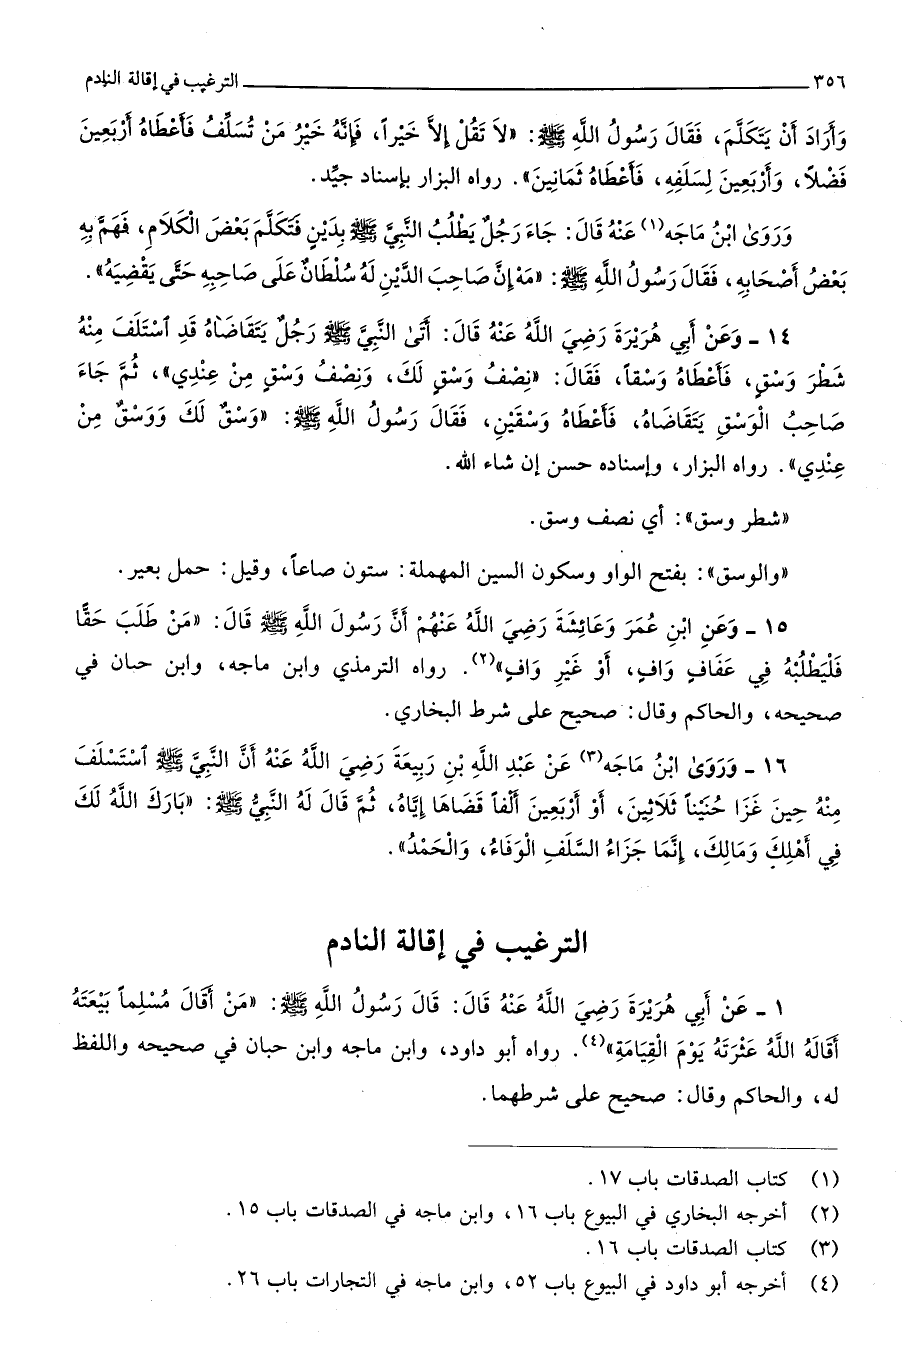 ٣٥٦ الترغيب في إقالة النادم
وَأَرَادَ أَنْ يَتَكَلَّمَ، فَقَالَ رَسُولُ اللَّهِ ﷺ: «لاَ تَقُلْ إِلاَّ خَيْراً، فَإِنَّهُ خَيْرُ مَنْ تُسَلِّفُ فَأَعْطَاهُ أَرْبَعِينَ
فَضْلاً، وَأَرْبَعِينَ لِسَلَفِهِ، فَأَعْطَاهُ ثَمَانِينَ». رواه البزار بإسناد جيِّد.
وَرَوَىٰ ابْنُ مَاجَه(١) عَنْهُ قَالَ: جَاءَ رَجُلٌ يَطْلُبُ النَّبِيَّ ﷺ بِدَيْنٍ فَتَكَلَّمَ بَعْضَ الْكَلَامِ، فَهَمَّ بِهِ
بَعْضُ أَصْحَابِهِ، فَقَالَ رَسُولُ اللَّهِ ﷺ: «مَهْ إِنَّ صَاحِبَ الدَّيْنِ لَهُ سُلْطَانٌ عَلَى صَاحِبِهِ حَتَّى يَقْضِيَهُ».
١٤ ـ وَعَنْ أَبِي هُرَيْرَةَ رَضِيَ اللَّهُ عَنْهُ قَالَ: أَتَىٰ النَّبِيَّ ﷺ رَجُلٌ يَتَقَاضَاهُ قَدِ ٱسْتَلَفَ مِنْهُ
شَطْرَ وَسْقٍ، فَأَعْطَاهُ وَسْقاً، فَقَالَ: «نِصْفُ وَسْقٍ لَكَ، وَنِصْفُ وَسْقٍ مِنْ عِنْدِي»، ثُمَّ جَاءَ
صَاحِبُ الْوَسْقِ يَتَقَاضَاهُ، فَأَعْطَاهُ وَسْقَيْنِ، فَقَالَ رَسُولُ اللَّهِ ﷺ: «وَسْقٌ لَكَ وَوَسْقٌ مِنْ
عِنْدِي». رواه البزار، وإسناده حسن إن شاء الله.
«شطر وسق»: أي نصف وسق.
«والوسق»: بفتح الواو وسكون السين المهملة: ستون صاعاً، وقيل: حمل بعير.
١٥ ـ وَعَنِ ابْنِ عُمَرَ وَعَائِشَةَ رَضِيَ اللَّهُ عَنْهُمْ أَنَّ رَسُولَ اللَّهِ ﷺ قَالَ: «مَنْ طَلَبَ حَقًّا
فَلْيَطْلُبْهُ فِي عَفَافٍ وَافٍ، أَوْ غَيْرِ وَافٍ»(٢). رواه الترمذي وابن ماجه، وابن حبان في
صحيحه، والحاكم وقال: صحيح على شرط البخاري.
١٦ ـ وَرَوَىٰ ابْنُ مَاجَه(٣) عَنْ عَبْدِ اللَّهِ بْنِ رَبِيعَةَ رَضِيَ اللَّهُ عَنْهُ أَنَّ النَّبِيَّ ﷺ ٱسْتَسْلَفَ
مِنْهُ حِينَ غَزَا حُنَيْناً ثَلَاثِينَ، أَوْ أَرْبَعِينَ أَلْفاً قَضَاهَا إِيَّاهُ، ثُمَّ قَالَ لَهُ النَّبِيُّ ﷺ: «بَارَكَ اللَّهُ لَكَ
فِي أَهْلِكَ وَمَالِكَ، إِنَّمَا جَزَاءُ السَّلَفِ الْوَفَاءُ، وَالْحَمْدُ».
الترغيب في إقالة النادم
١ ـ عَنْ أَبِي هُرَيْرَةَ رَضِيَ اللَّهُ عَنْهُ قَالَ: قَالَ رَسُولُ اللَّهِ ﷺ: «مَنْ أَقَالَ مُسْلِماً بَيْعَتَهُ
أَقَالَهُ اللَّهُ عَثْرَتَهُ يَوْمَ الْقِيَامَةِ»(٤). رواه أبو داود، وابن ماجه وابن حبان في صحيحه واللفظ
له، والحاكم وقال: صحيح على شرطهما.
(١) كتاب الصدقات باب ١٧.
(٢) أخرجه البخاري في البيوع باب ١٦، وابن ماجه في الصدقات باب ١٥.
(٣) كتاب الصدقات باب ١٦.
(٤) أخرجه أبو داود في البيوع باب ٥٢، وابن ماجه في التجارات باب ٢٦.